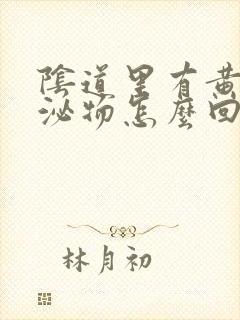 陰道里有黃
泌物怎麼回
林月初